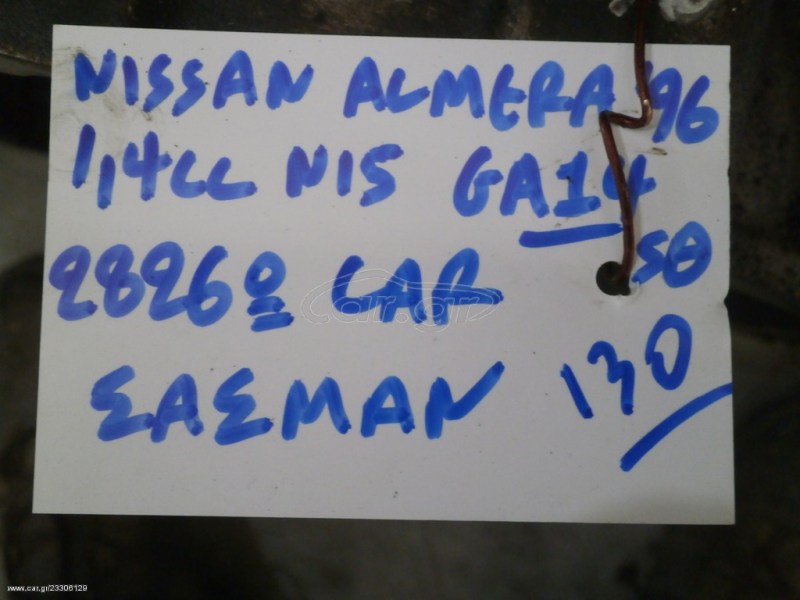 NISSAN ALMERA '96
1,4CC NIS GA14
28260 CAR SΘ
ΣΑΣΜΑΝ 130
www.car.gr/23306129